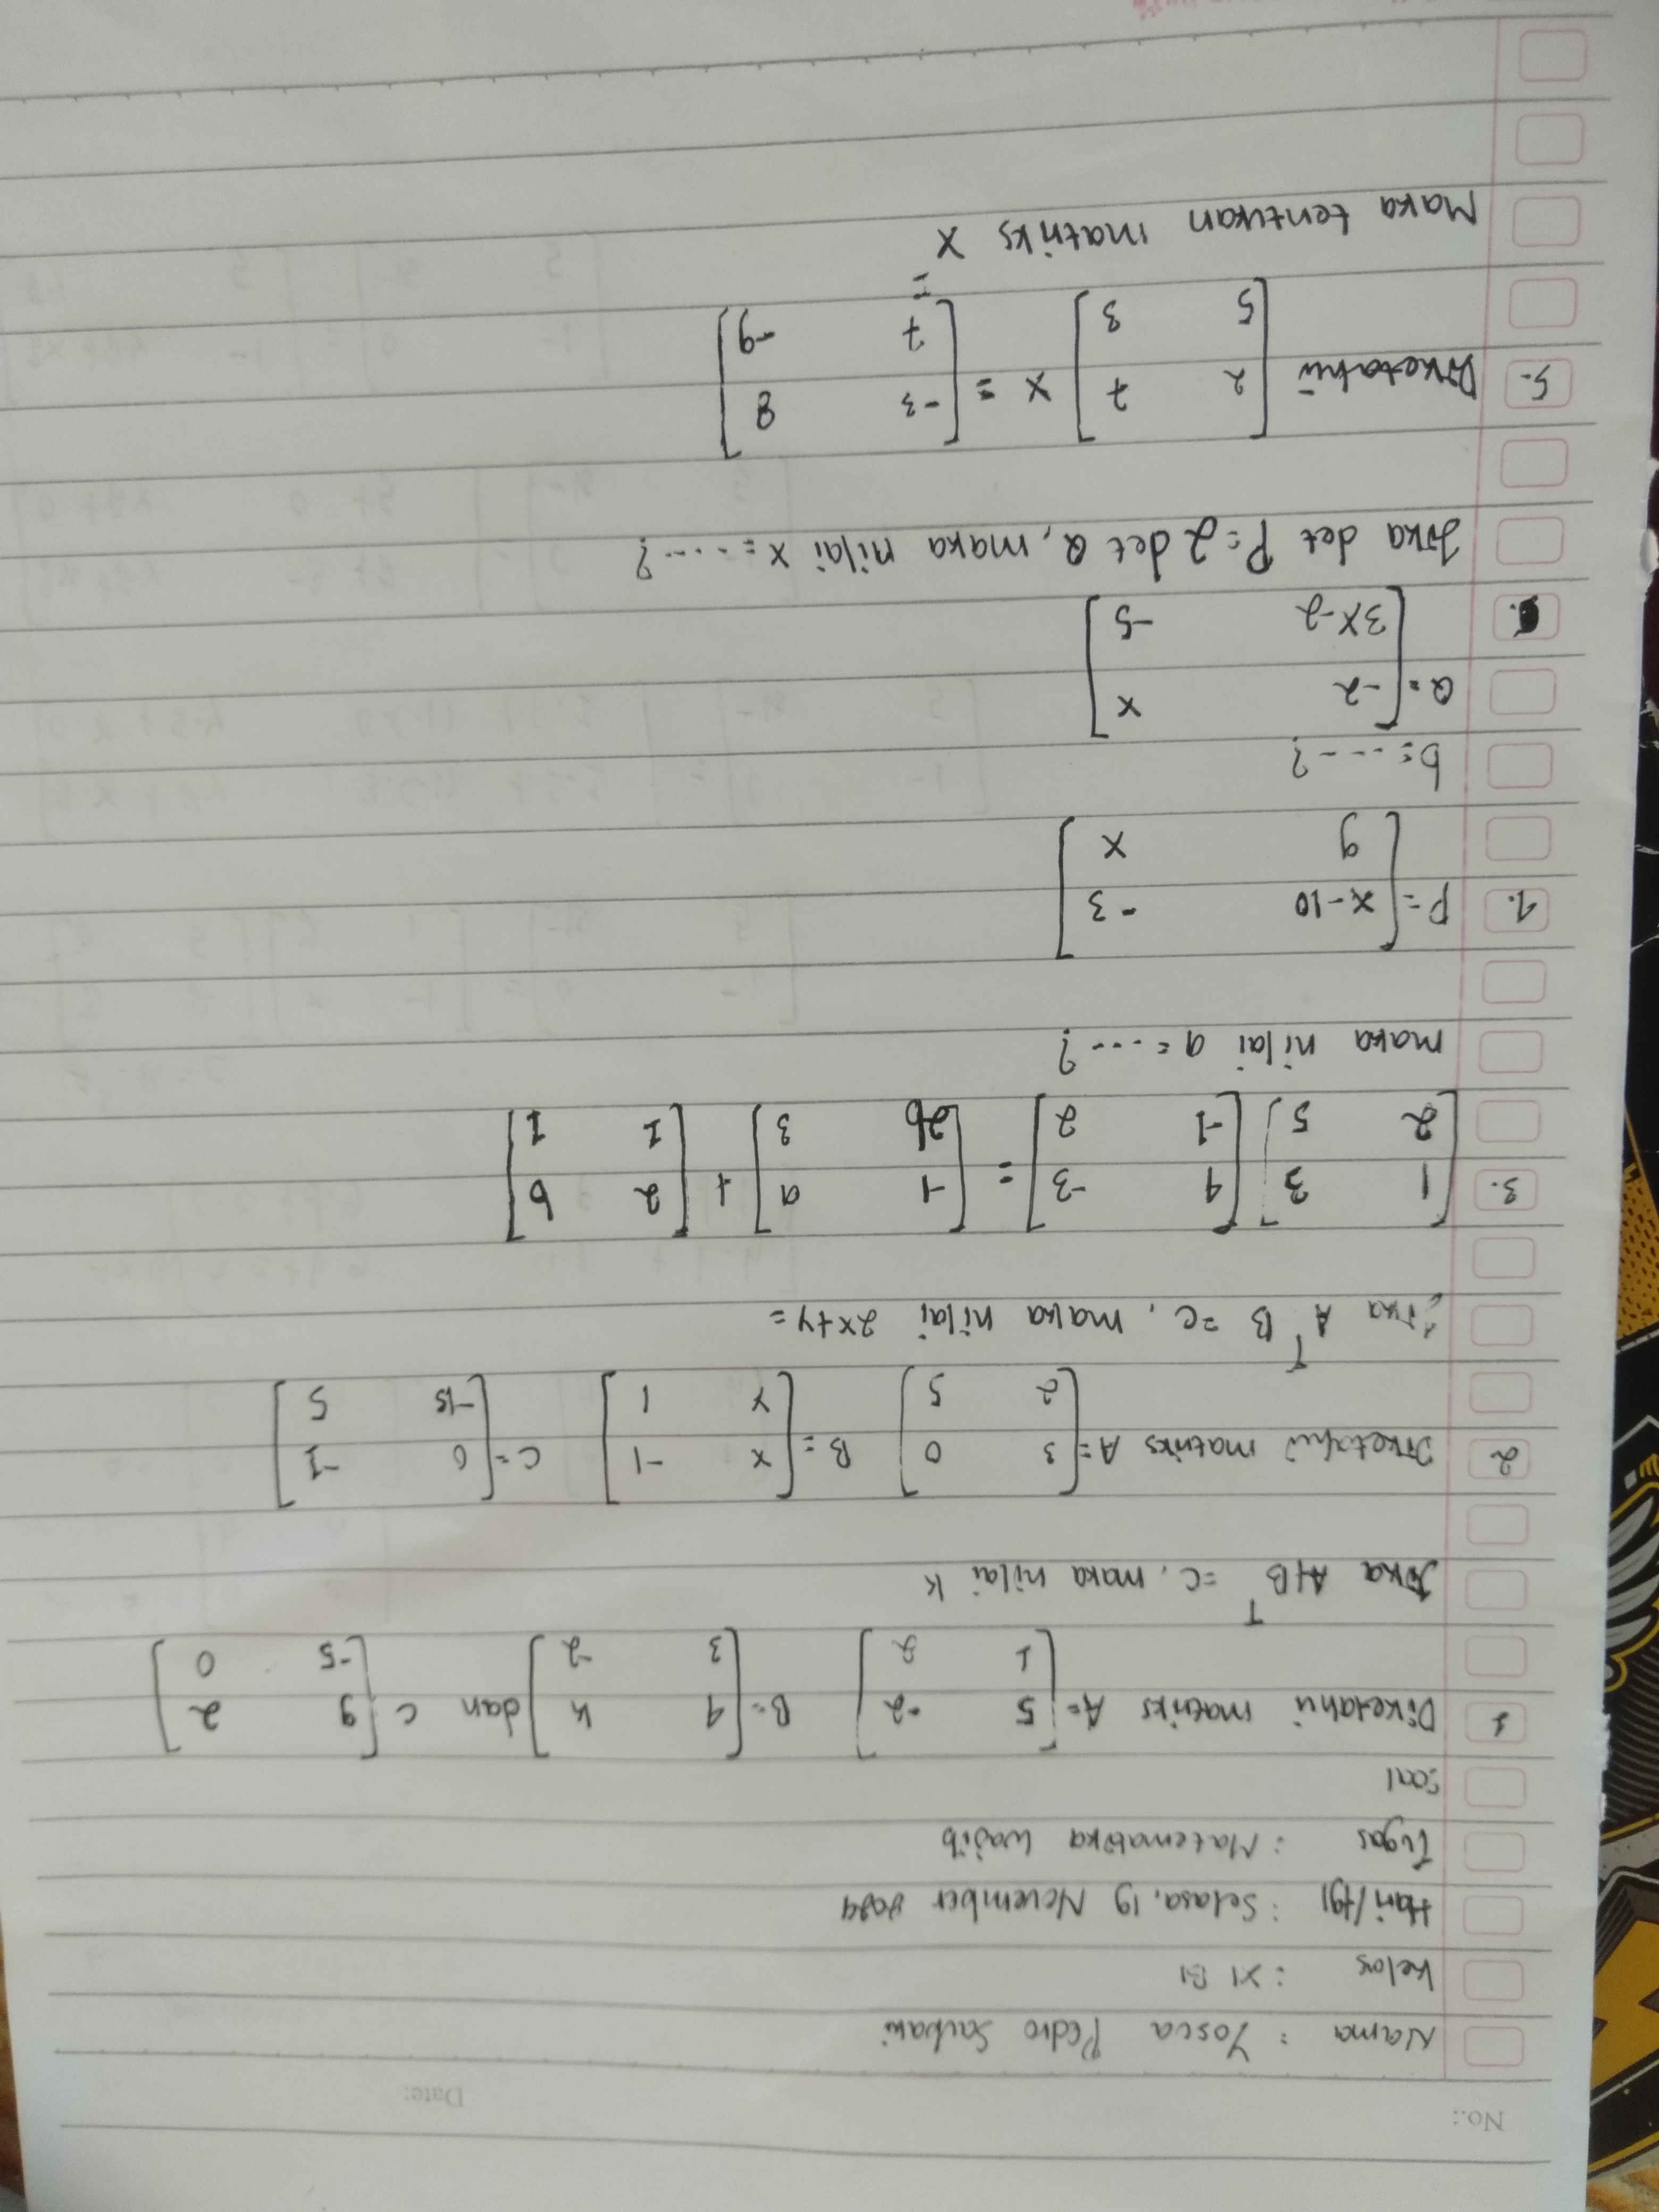 No.:
Date:
Nama : Yosca Pedro Saubani
Kelas : XI B1
Hari/tgl : Selasa, 19 November 2024
Tugas : Matematika wajib
Soal
1 Diketahui matriks A = [5 -2] B = [4 k] dan C [9 2]
[1 2] [3 -2] [-5 0]
Jika A+B^T = C, maka nilai k
2 Diketahui matriks A = [3 0] B = [x -1] C = [0 -1]
[2 5] [y 1] [-15 5]
jika A^T B = C, maka nilai 2x+y=
3. [1 3] [4 -3] = [-1 a] + [2 b]
[2 5] [-1 2] [2b 3] [1 1]
maka nilai a = ....?
4. P = [x-10 -3]
[9 x]
b = ....?
Q = [-2 x]
[3x-2 -5]
Jika det P = 2 det Q, maka nilai x = ....?
5. Diketahui [2 7] x = [-3 8]
[5 3] [7 -9]
=
Maka tentukan matriks X